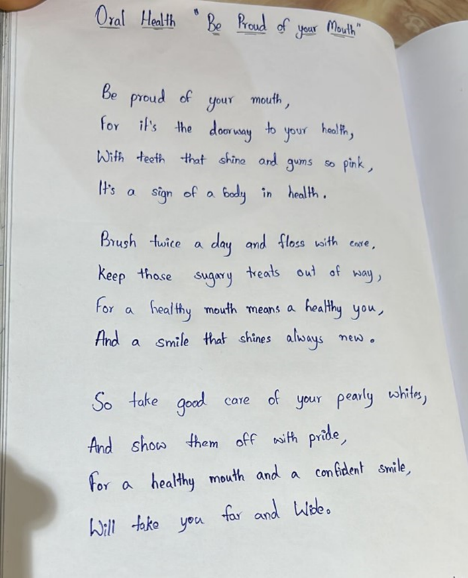 Oral Health "Be Proud of your Mouth"
Be proud of your mouth,
For it's the doorway to your health,
With teeth that shine and gums so pink,
It's a sign of a body in health.
Brush twice a day and floss with care,
Keep those sugary treats out of way,
For a healthy mouth means a healthy you,
And a smile that shines always new.
So take good care of your pearly whites,
And show them off with pride,
For a healthy mouth and a confident smile,
Will take you far and Wide.